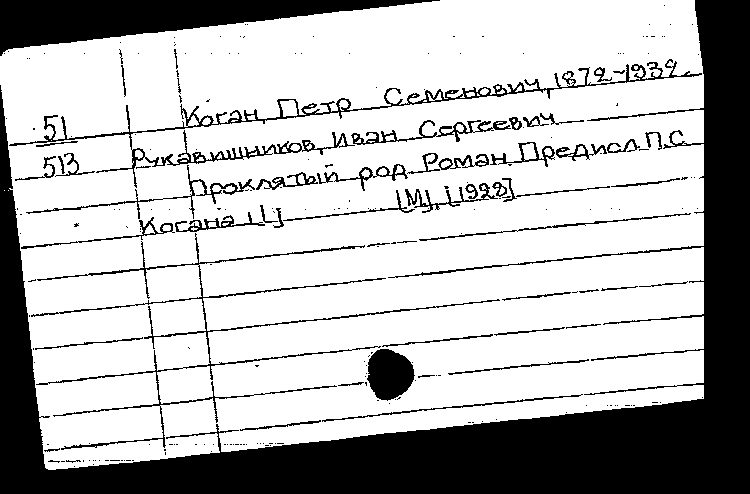 51 Коган, Петр Семенович, 1872-1932.
513 Рукавишников, Иван Сергеевич
Проклятый род. Роман. Предисл. П.С.
Когана [1] [М], [1922]